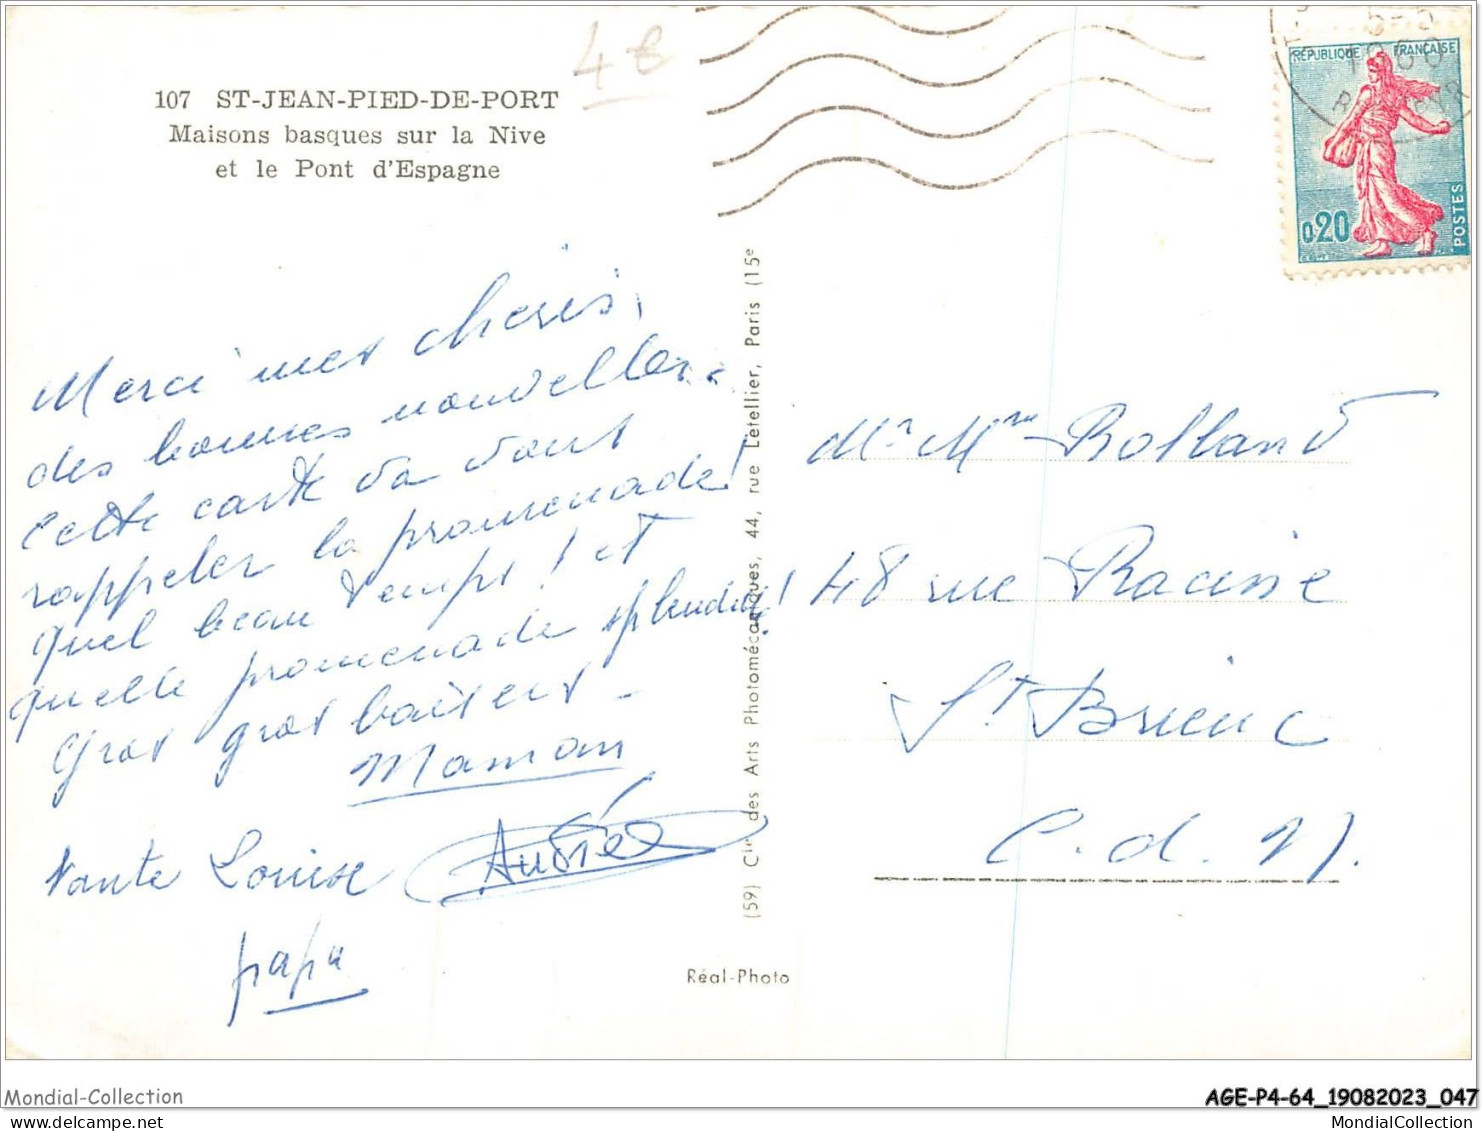 4€
107 ST-JEAN-PIED-DE-PORT
Maisons basques sur la Nive
et le Pont d'Espagne
RÉPUBLIQUE FRANÇAISE
0,20
POSTES
Merci mes cheris,
des bonnes nouvelles.
Cette carte va vous
rappeler la promenade!
quel beau temps! et
quelle promenade splendide!
Gros gros baisers -
Maman
tante Louise
papa
(59) Cie des Arts Photomécaniques, 44, rue Letellier, Paris (15e
Réal-Photo
Mr Mme Rolland
48 rue Racine
St Brieuc
C. d. N.
Mondial-Collection
AGE-P4-64_19082023_047
MondialCollection